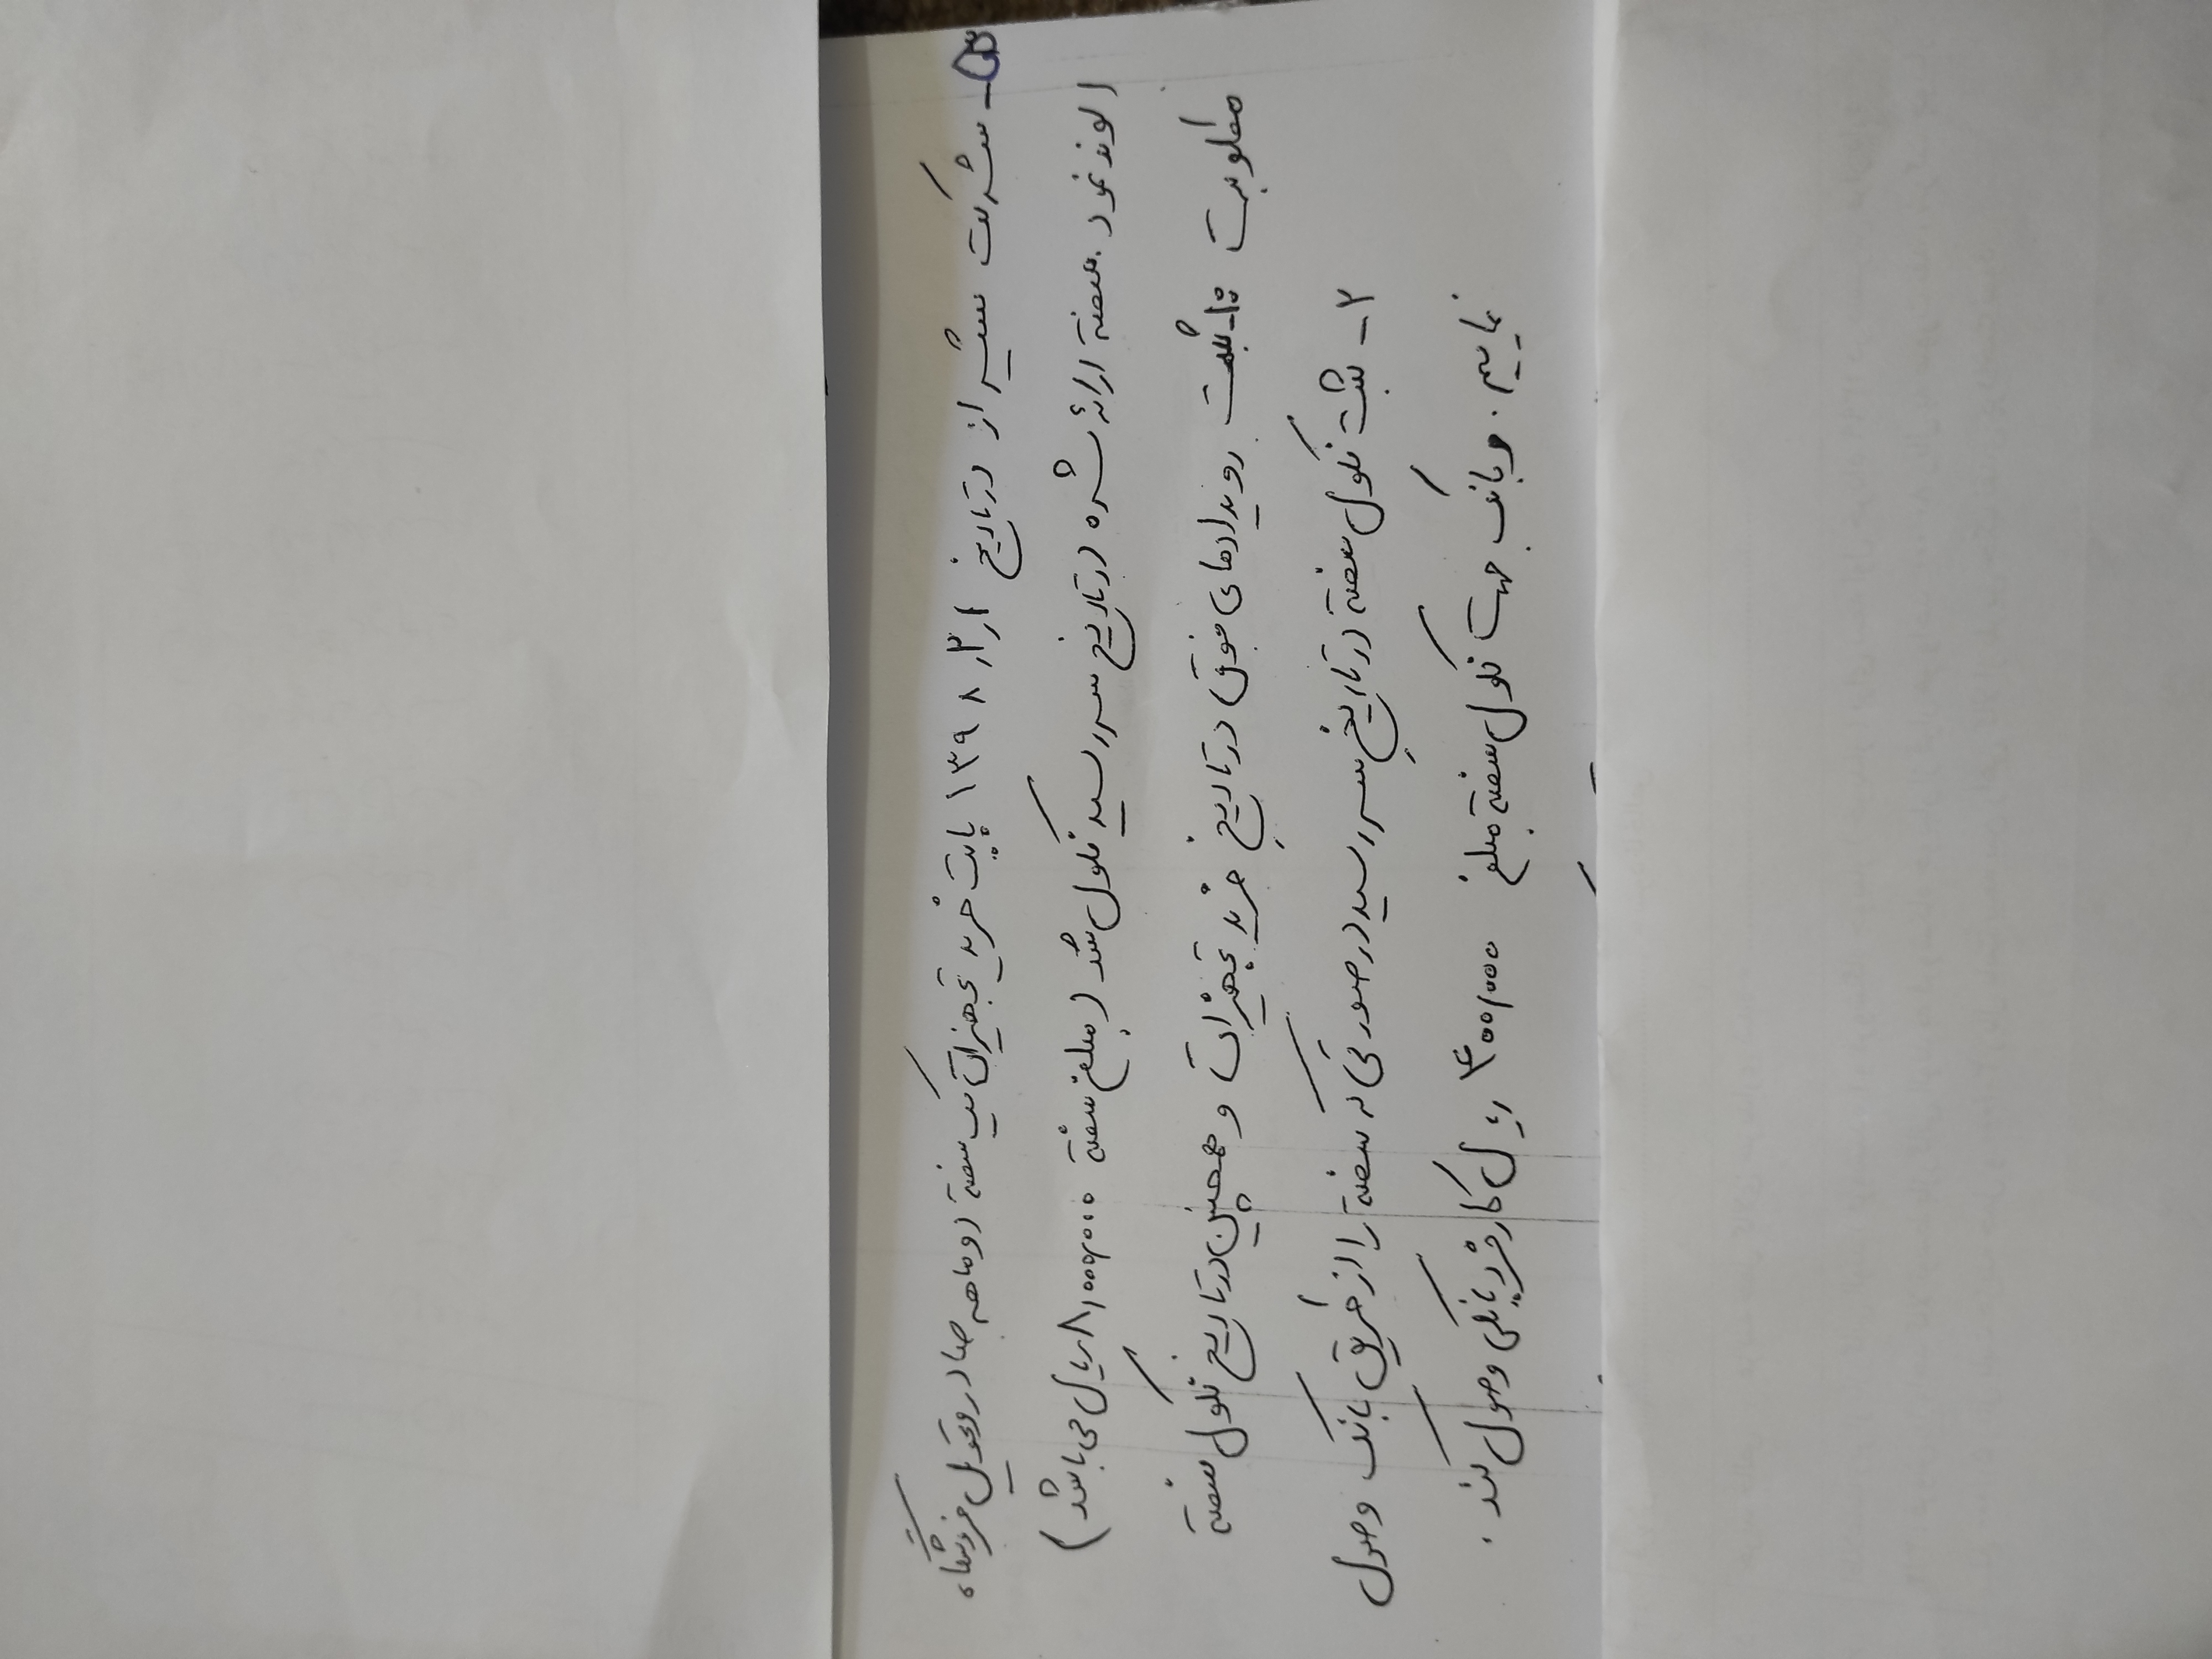 ۵- شرکت شیراز در تاریخ ۱۳۹۸٫۳٫۱ بابت خرید تجهیزات یک سفته دوماهه صادر و تحویل فروشگاه
الوند نمود. سفته ارائه شده در تاریخ سررسید نکول شد (مبلغ سفته ۸٫۰۰۰٫۰۰۰ ریال می باشد)
مطلوبست :۱- ثبت رویدادهای فوق در تاریخ خرید تجهیزات و همچنین در تاریخ نکول سفته
۲- ثبت نکول سفته در تاریخ سررسید در صورتی که سفته را از طریق بانک وصول
نماییم. و بانک جهت نکول سفته مبلغ ۰۰٫۰۰۰ ریال کارمزد بانکی وصول کند.